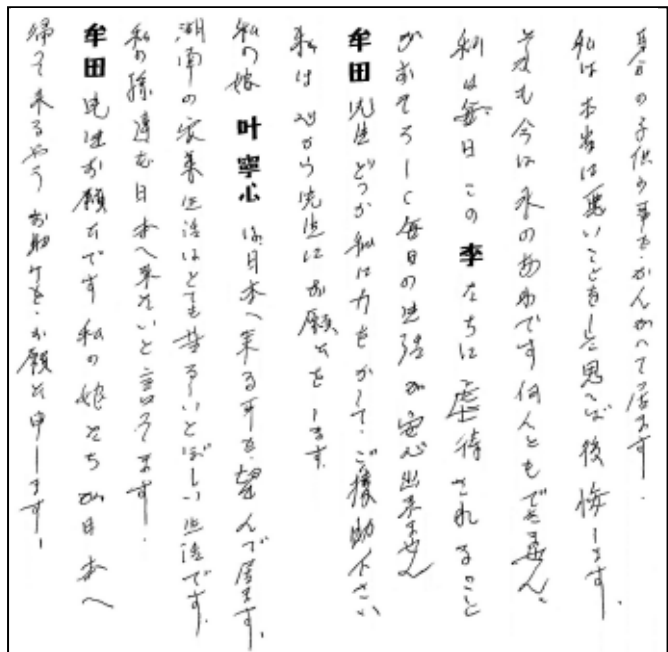 自分の子供の事を・かんがへて居ます・
私は本当は悪いことをした思へば後悔します。
是も今は水のあわです何んともできません、
私は毎日この李たちに虐待されること
がおそろしく毎日の生活が安心出来ません
牟田先生どうか私に力をかして・ご援助下さい
私は心から先生にお願ひをします。
私の娘 叶寧心 は、日本へ来る事を・望んで居ます、
湖南の家養生活はとても苦るしいとぼしい生活です。
私の孫達も日本へ来たいと言ってます・
牟田先生お願ひです私の娘たちが日本へ
帰って来るやうお助けを・お願ひ申します・